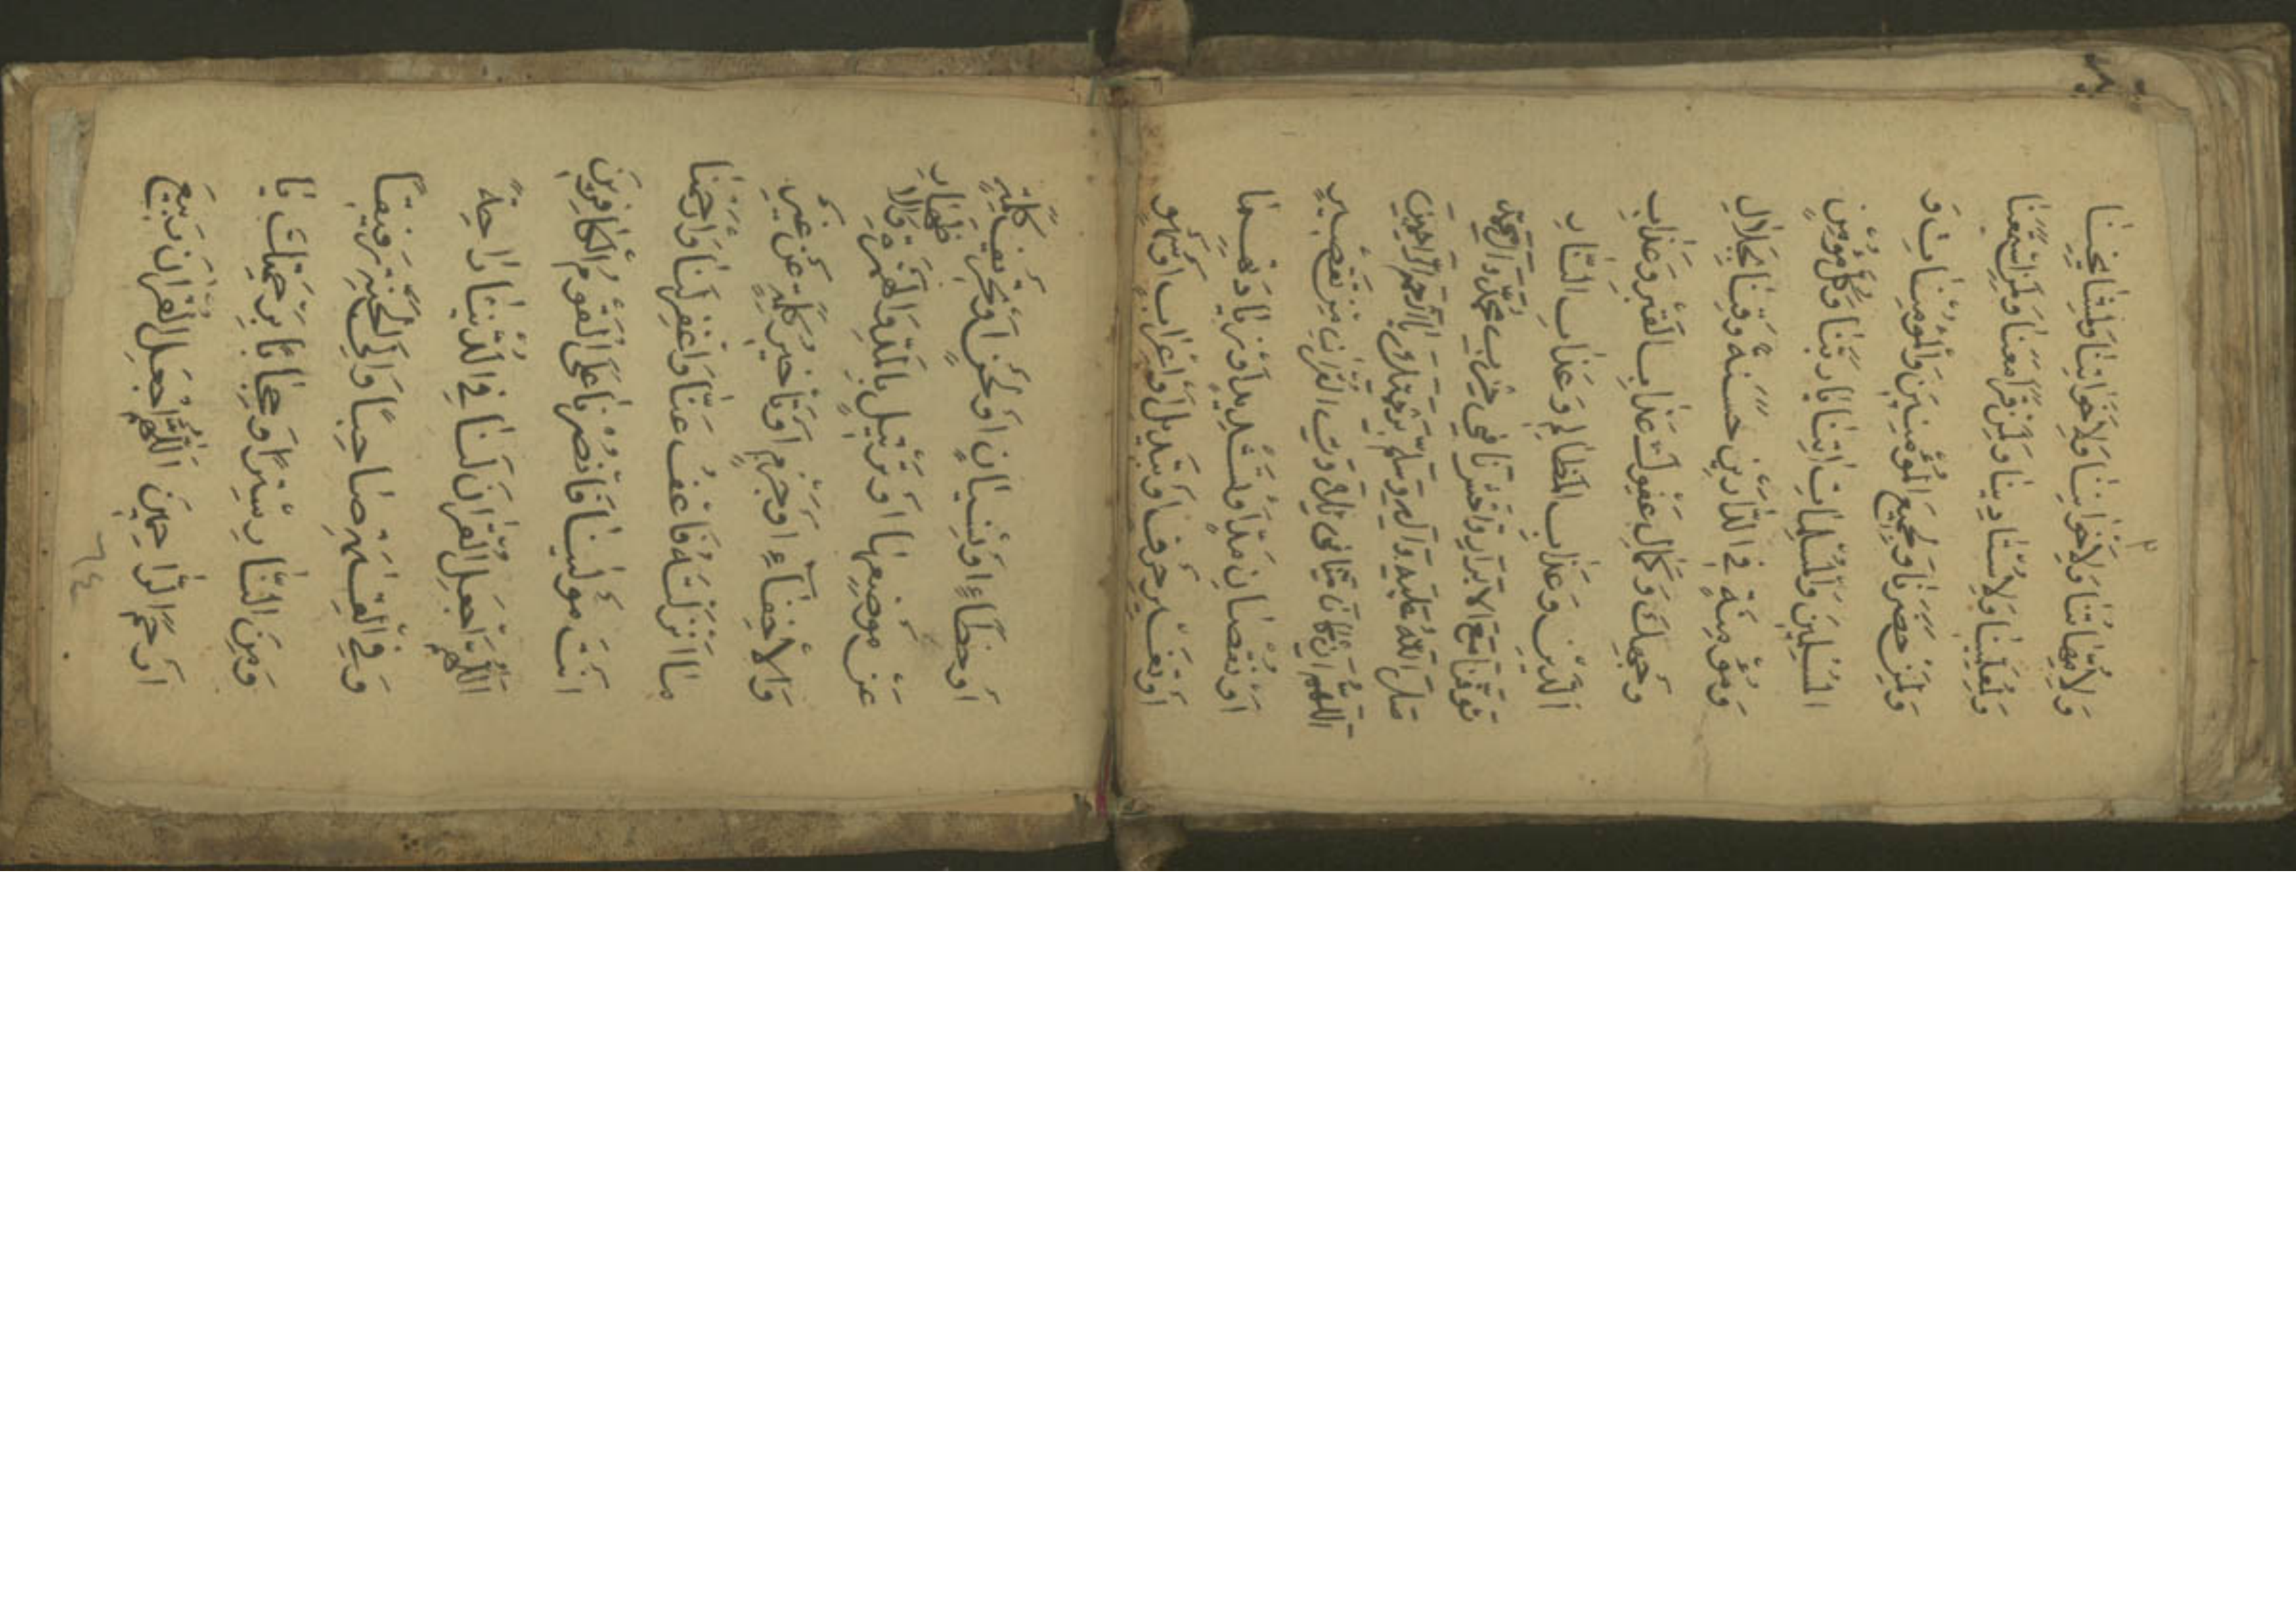 وَلِاُمَّهَاتِنَا وَلِاِخْوَانِنَا وَلِاَخَوَاتِنَا وَلِمَشَايِخِنَا
وَلِمُعَلِّمِينَا وَلِاُسْتَادِينَا وَلِمَنْ قَرَأَ مَعَنَا وَلِمَنْ اسْتَمَعَنَا
وَلِمَنْ حَضَرَنَا وَلِجَمِيعِ الْمُؤْمِنِينَ وَالْمُؤْمِنَاتِ وَ
الْمُسْلِمِينَ وَالْمُسْلِمَاتِ اتِنَا يَا رَبَّنَا وَكُلَّ مُؤْمِنٍ
وَمُؤْمِنَةٍ فِي الدَّارَيْنِ حَسَنَةً وَقِنَا بِجَلَالِ
وَجْهِكَ وَكَمَالِ عَفْوِكَ عَذَابَ الْقَبْرِ وَعَذَابَ
الدَّيْنِ وَعَذَابَ الْمَظَالِمِ وَعَذَابَ النَّارِ
تَوَفَّنَا مَعَ الْاَبْرَارِ وَاحْشُرْنَا فِي حِزْبِ مُحَمَّدٍ وَآلِ مُحَمَّدٍ
صَلَّى اللّٰهُ عَلَيْهِ وَآلِهِ وَسَلَّمَ بِرَحْمَتِكَ يَا اَرْحَمَ الرَّاحِمِينَ
اَللّٰهُمَّ اِنْ كَانَ مِنَّا فِي تِلَاوَتِ الْقُرْانِ مِنْ تَقْصِيرٍ
اَوْ نُقْصَانِ مَدٍّ اَوْ تَشْدِيدٍ اَوْ زِيَادَتِهِمَا
اَوْ تَغْيِيرِ حَرْفٍ اَوْ تَبْدِيلٍ اَوْ اِعْرَابٍ اَوْ سَهْوٍ
اَوْ خَطَاءٍ اَوْ نِسْيَانٍ اَوْ لَحْنٍ اَوْ تَحْرِيفِ كَلِمَةٍ
عَنْ مَوْضِعِهَا اَوْ تَرْتِيلٍ بِالْمَدِّ وَالْهَمْزَةِ وَالْاِظْهَارِ
وَالْاِخْفَاءِ اَوْ جَزْمٍ اَوْ تَاْخِيرِ كَلِمَةٍ عَنْ غَيْرِ
مَا اَنْزَلْتَهُ فَاعْفُ عَنَّا وَاغْفِرْ لَنَا وَارْحَمْنَا
اَنْتَ مَوْلٰينَا فَانْصُرْنَا عَلَى الْقَوْمِ الْكَافِرِينَ
اَللّٰهُمَّ اجْعَلِ الْقُرْانَ لَنَا فِي الدُّنْيَا رَاحَةً
وَفِي الْقِيٰمَةِ صَاحِبًا وَاِلَى الْخَيْرِ رَفِيقًا
وَمِنَ النَّارِ سِتْرًا وَحِجَابًا بِرَحْمَتِكَ يَا
اَرْحَمَ الرَّاحِمِينَ اَللّٰهُمَّ اجْعَلِ الْقُرْانَ رَبِيعَ
٦٤